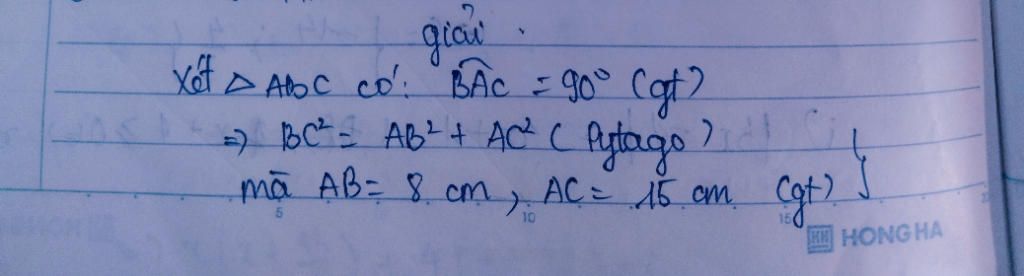 giải.
Xét △ ABC có: BAC = 90° (gt)
=> BC² = AB² + AC² ( Pytago )
mà AB = 8 cm, AC = 15 cm (gt) }
5 10 15
HH HONG HA